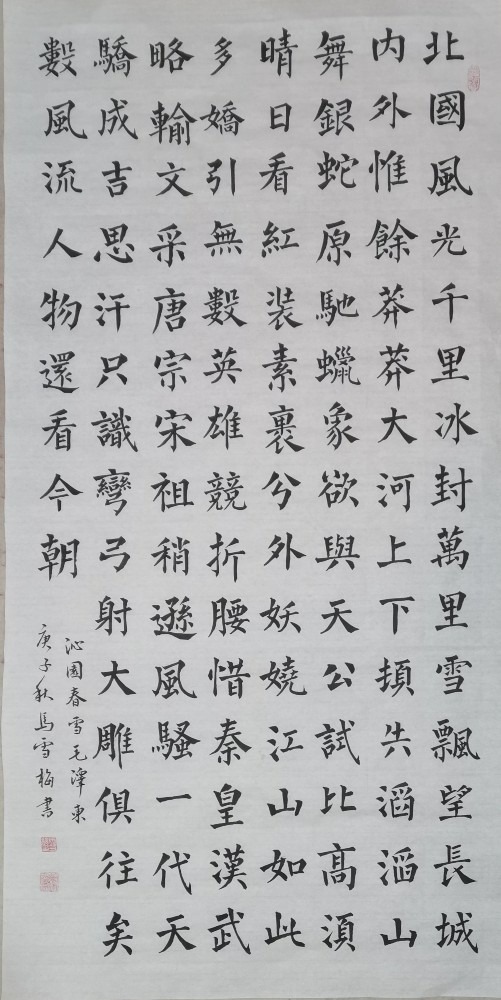 北國風光千里冰封萬里雪飄望長城
内外惟餘莽莽大河上下頓失滔滔山
舞銀蛇原馳蠟象欲與天公試比高須
晴日看紅装素裹分外妖嬈江山如此
多嬌引無數英雄競折腰惜秦皇漢武
略輸文采唐宗宋祖稍遜風騷一代天
驕成吉思汗只識彎弓射大雕俱往矣
數風流人物還看今朝
沁園春雪毛澤東
庚子秋馬雪梅書